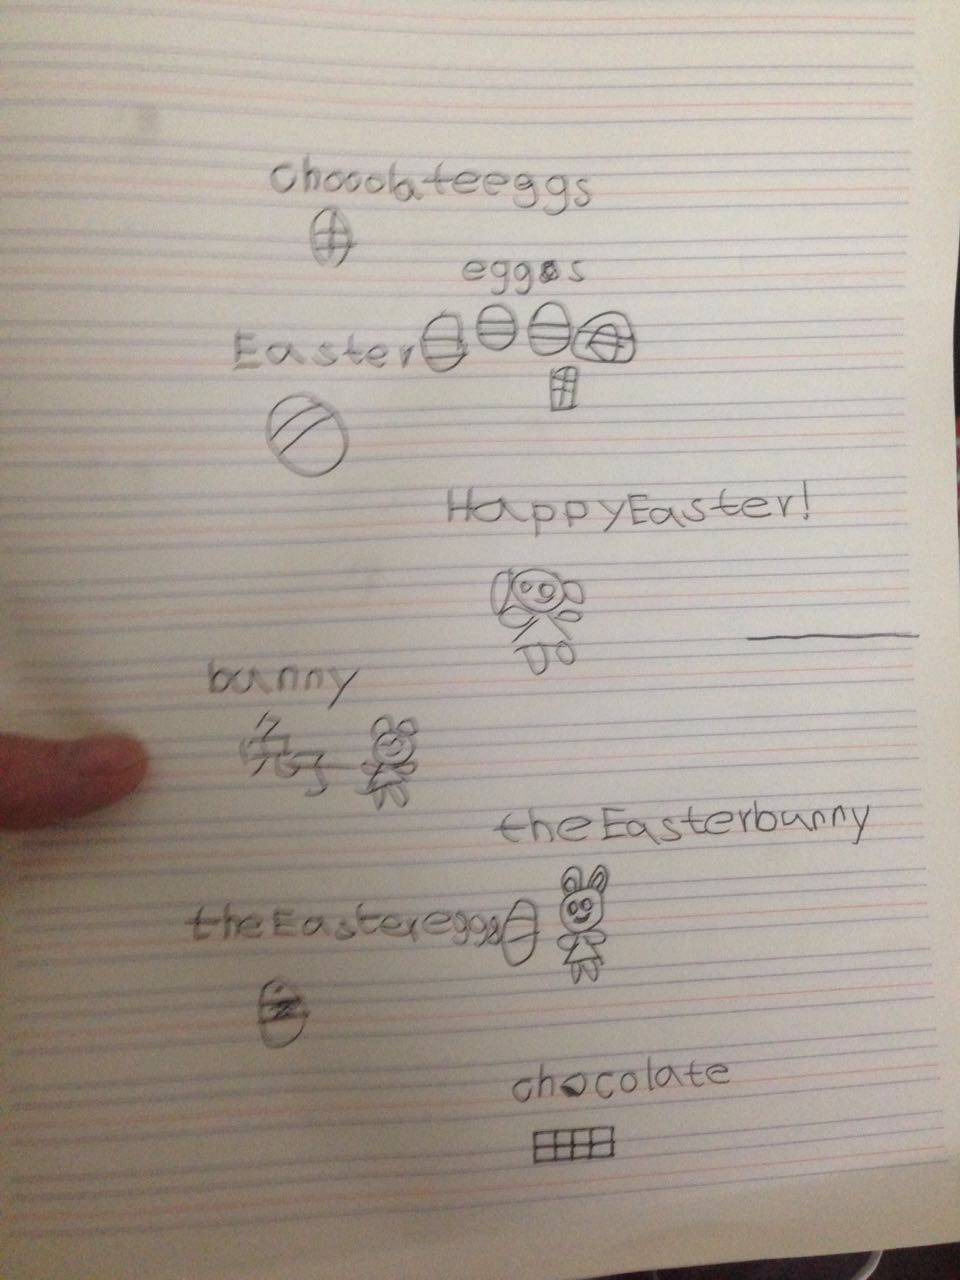 chocolateeggs
eggs
Easter
HappyEaster!
bunny
兔子
theEasterbunny
theEastereggs
chocolate